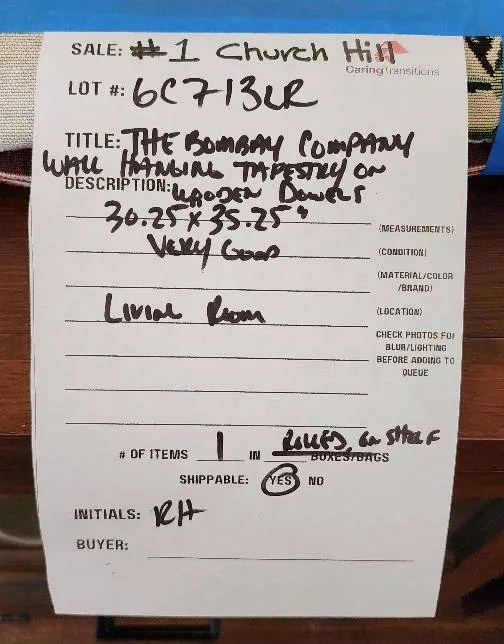 SALE: #1 Church Hill
Caring Transitions
LOT #: 6C713LR
TITLE: THE BOMBAY COMPANY
WALL HANGING TAPESTRY ON
DESCRIPTION: WOODEN DOWELS
30.25 x 35.25"
(MEASUREMENTS)
VERY GOOD
(CONDITION)
(MATERIAL/COLOR
/BRAND)
LIVING ROOM
(LOCATION)
CHECK PHOTOS FOR
BLUR/LIGHTING
BEFORE ADDING TO
QUEUE
# OF ITEMS 1 IN ROLLED, ON SHELF
BOXES/BAGS
SHIPPABLE: YES NO
INITIALS: RH
BUYER: